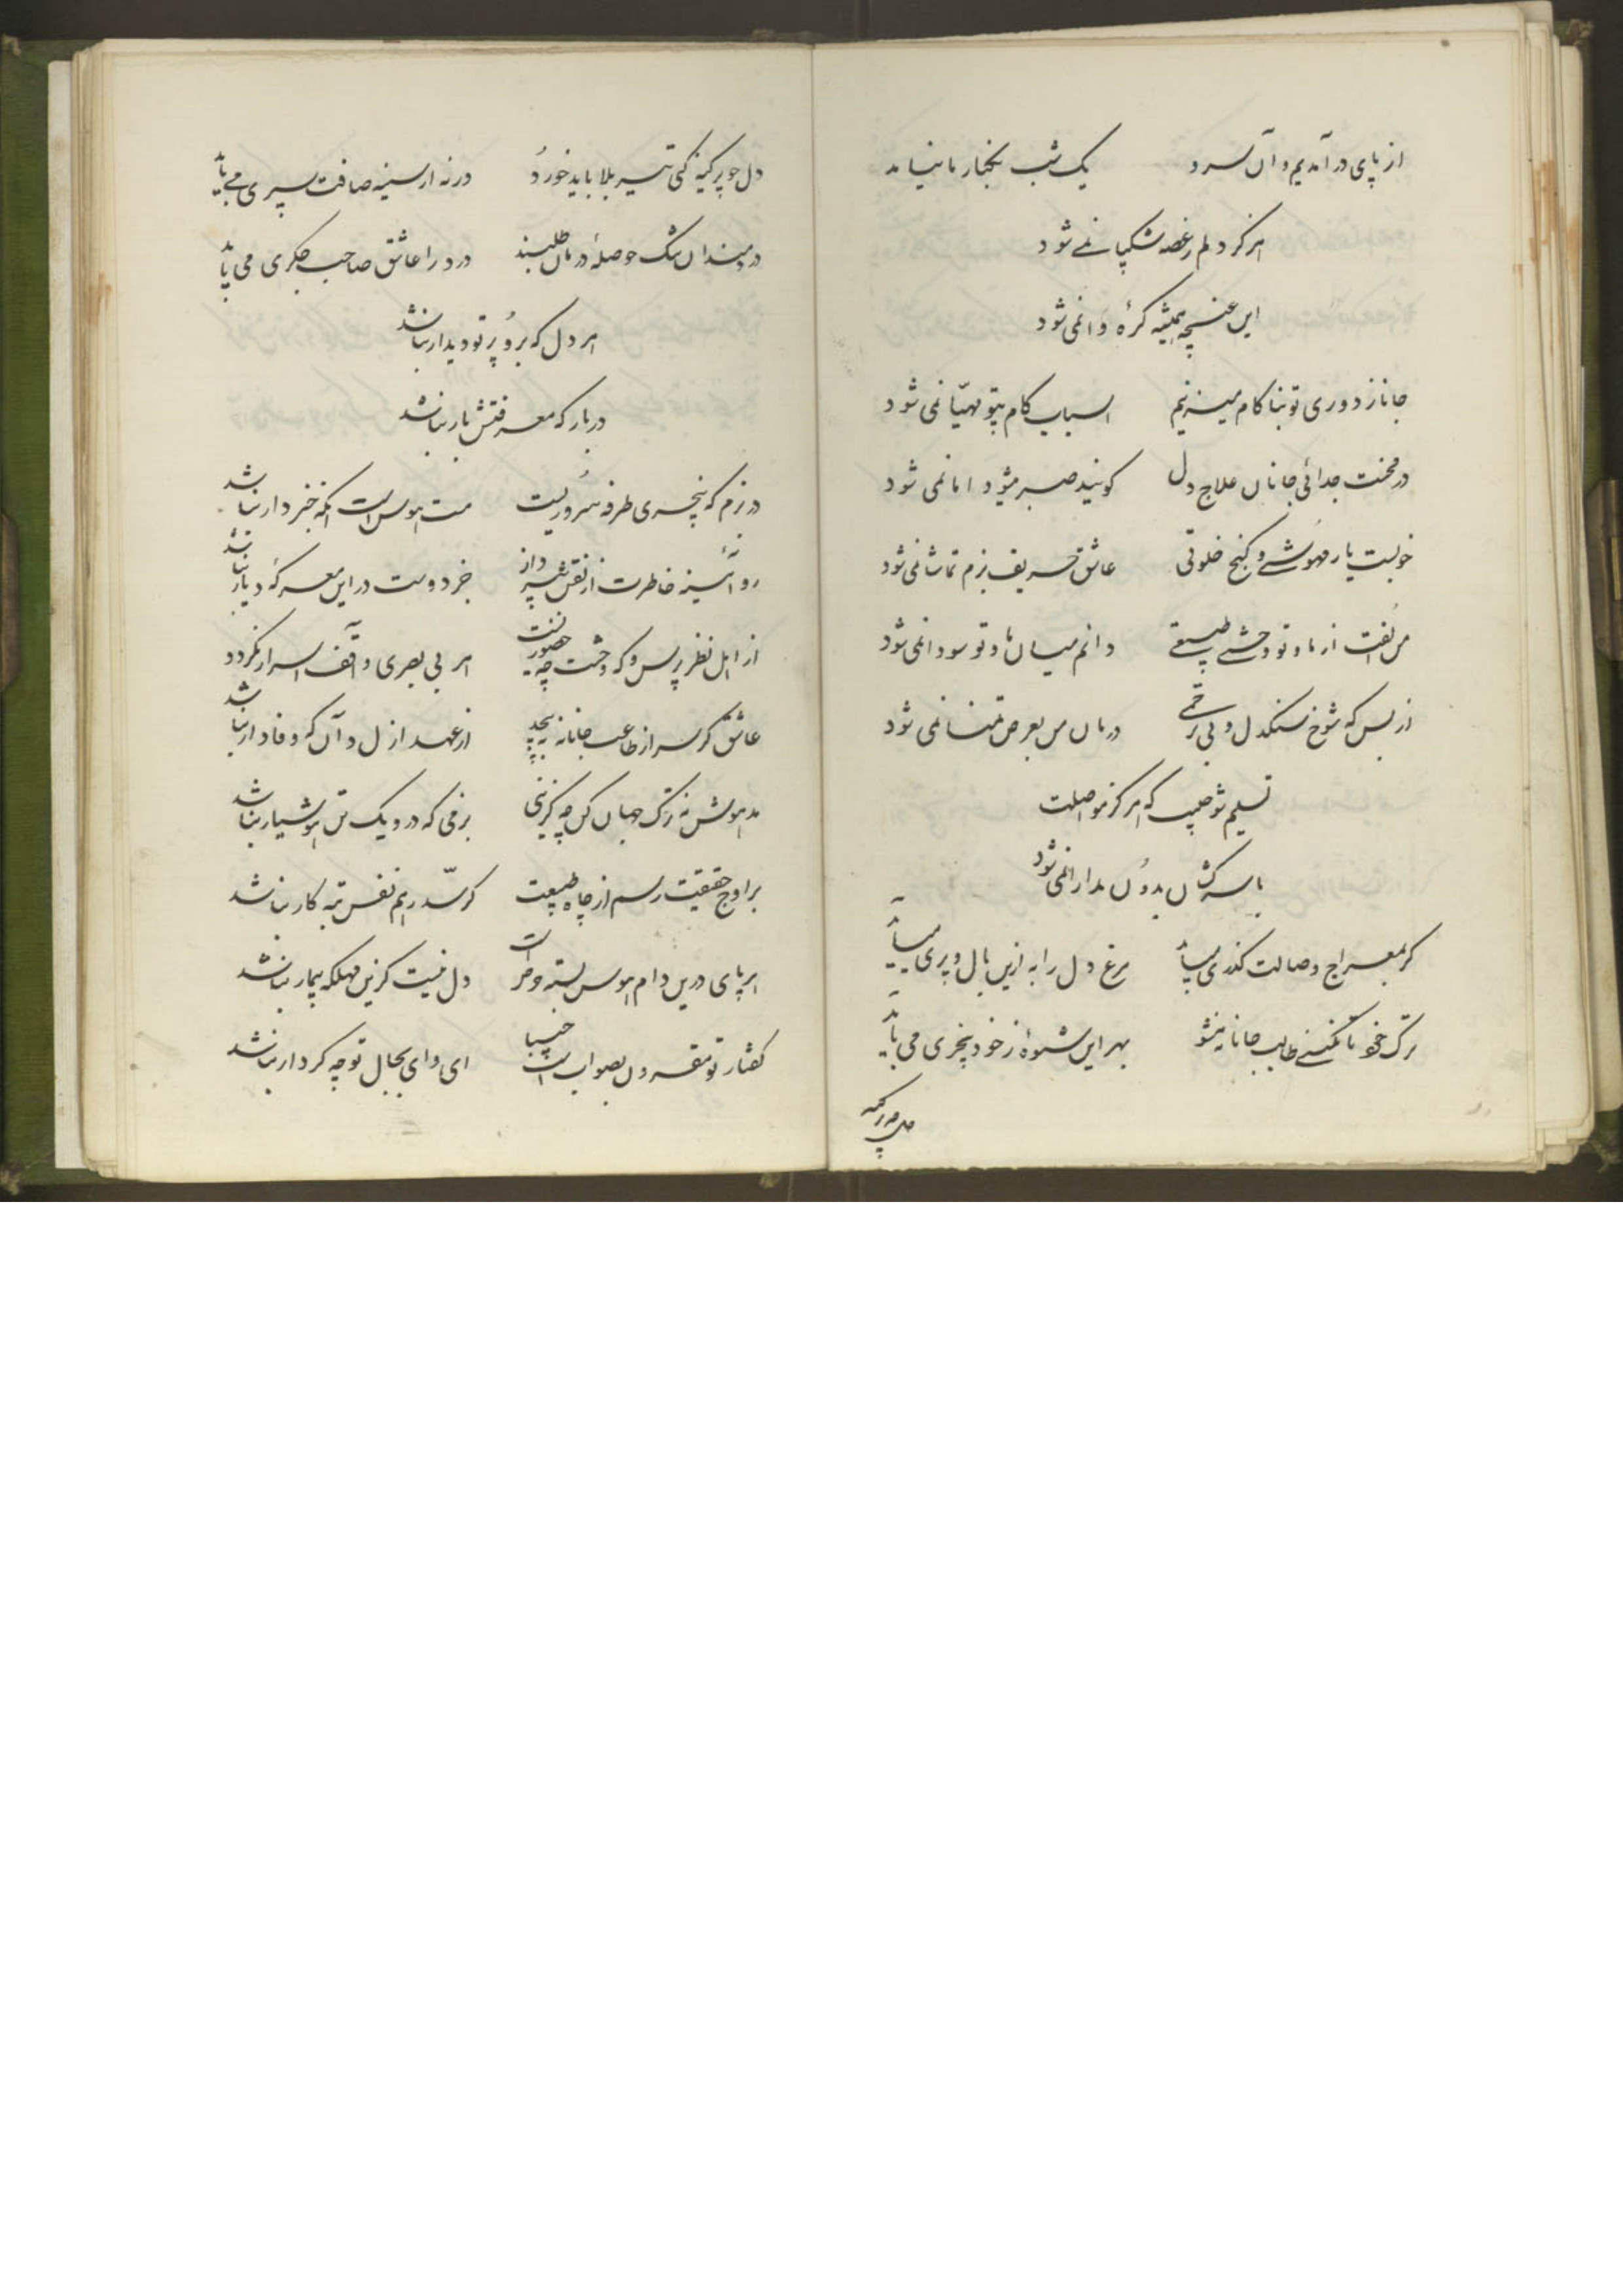 از پای در آمدیم و آن سرو یک شب بکنار ما نیامد
هرگز دلم ز غصه شکیبا نمی شود
این غنچه همیشه گره وا نمی شود
جانا ز دوری تو بناکام میزیم اسباب کام بیتو مهیّا نمی شود
در محنت جدائی جانان علاج دل گویند صبر میشود اما نمی شود
خوبست یار مهوشی و کنج خلوتی عاشق حریف بزم تماشا نمی شود
من الفت از ما و تو وحشی طبیعتی دانم میان ما و تو سودا نمی شود
از بس که شوخ سنگدل و بی ترحمی درمان من بعرض تمنا نمی شود
تسلیم شو حبیب که هرگز مواصلت
با سرکشان بدون مدارا نمی شود
گر بمعراج وصالت گذری میباید مرغ دل را به ازین بال و پری میباید
ترک خود تا نکنی طالب جانانه مشو بهر این شیوه ز خود بیخبری می باید
دل چو پر کینه کنی تیر بلا باید خورد ورنه از سینه صافت سپری می باید
دردمندان تنک حوصله درمان طلبند درد را عاشق صاحب جگری می باید
هر دل که برو پرتو دیدار نباشد
در بارگه معرفتش بار نباشد
در بزم که بیخبری طرفه سروریست مست هوس است آنکه خبردار نباشد
رو آئینه خاطرت از نقش بپرداز جز دوست در این معرکه دیار نباشد
از اهل نظر پرس که وحشت چه حضورست هر بی بصری واقف اسرار نگردد
عاشق که سر از طاعت جانانه بپیچد از عهد ازل دان که وفادار نباشد
مدهوش نه ترک جهان کن چه گزینی بزمی که درو یک تن هوشیار نباشد
بر اوج حقیقت رسم از چاه طبیعت گر سد رهم نفس تبه کار نباشد
هر پای درین دام هوس بسته و حر است دل نیست کزین مهلکه بیمار نباشد
گفتار تو مقرون بصواب است حبیبا ای وای بحال تو چه کردار نباشد